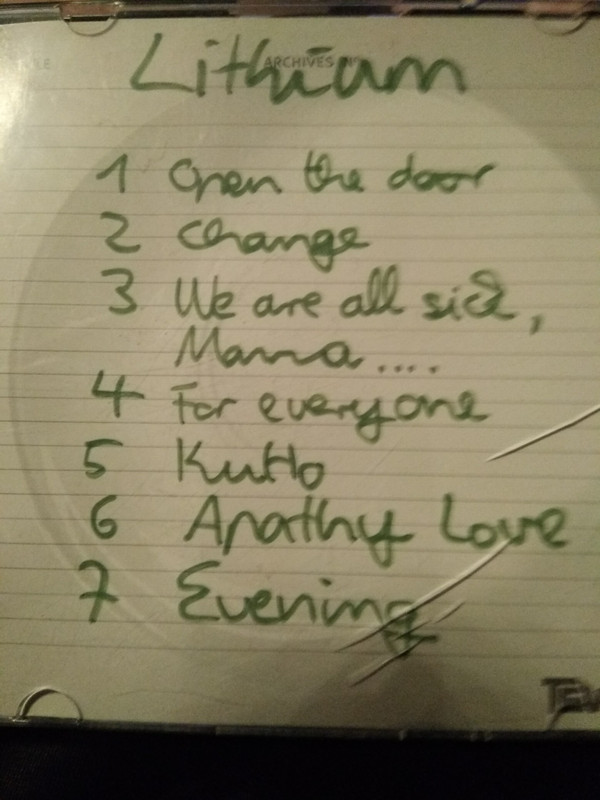 Lithium
ARCHIVES N°
1 Open the door
2 Change
3 We are all sick,
Mama....
4 For everyone
5 Kutlo
6 Apathy Love
7 Evening